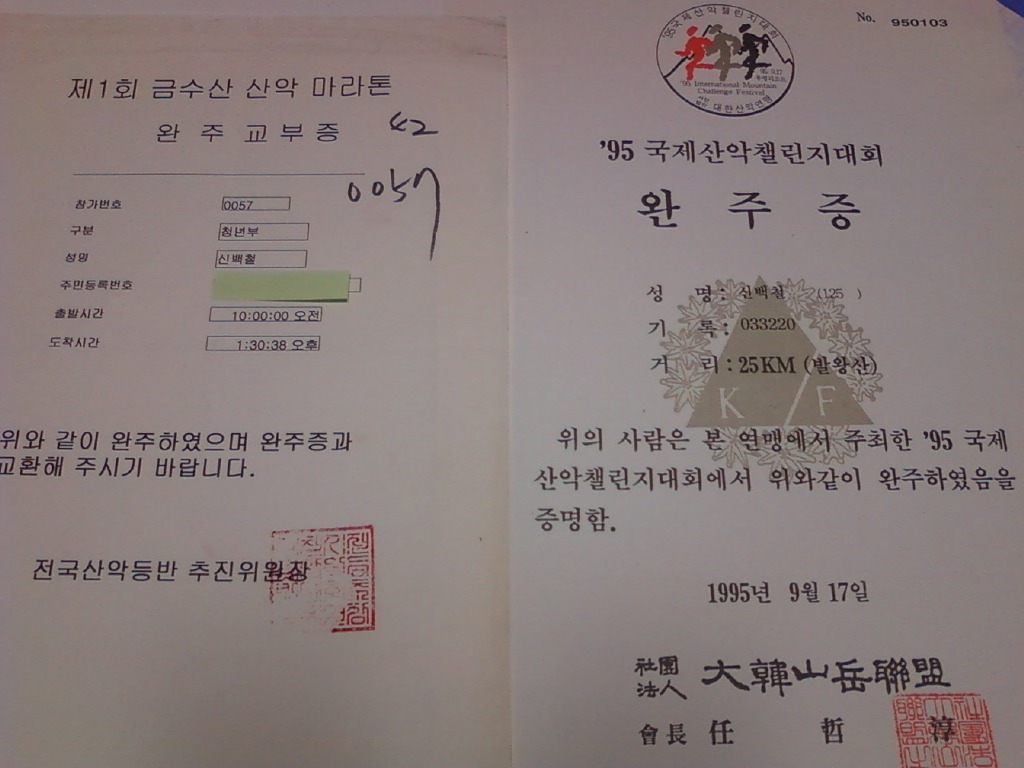 제1회 금수산 산악 마라톤
완 주 교 부 증
42
0057
참가번호 0057
구분 청년부
성명 신백철
주민등록번호
출발시간 10:00:00 오전
도착시간 1:30:38 오후
위와 같이 완주하였으며 완주증과
교환해 주시기 바랍니다.
전국산악등반 추진위원장
No. 950103
'95국제산악챌린지대회
'95 International Mountain
Challenge Festival
대한산악연맹
'95 국제산악챌린지대회
완 주 증
성 명 : 신백철 (125 )
기 록 : 033220
거 리 : 25KM (발왕산)
K F
위의 사람은 본 연맹에서 주최한 '95 국제
산악챌린지대회에서 위와같이 완주하였음을
증명함.
1995년 9월 17일
社團
法人 大韓山岳聯盟
會長 任 哲 淳